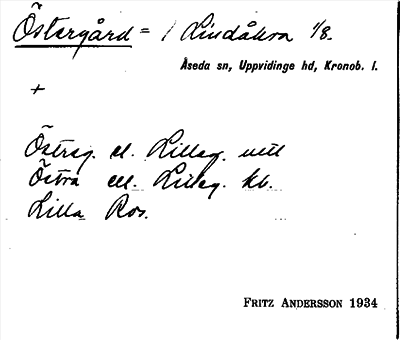 Östergård = / Lindåkra 1/8.
Åseda sn, Uppvidinge hd, Kronob. l.
+
Östreg. el. Lilleg. uttl
Östra ell. Lilleg. kb.
Lilla Ros.
FRITZ ANDERSSON 1934